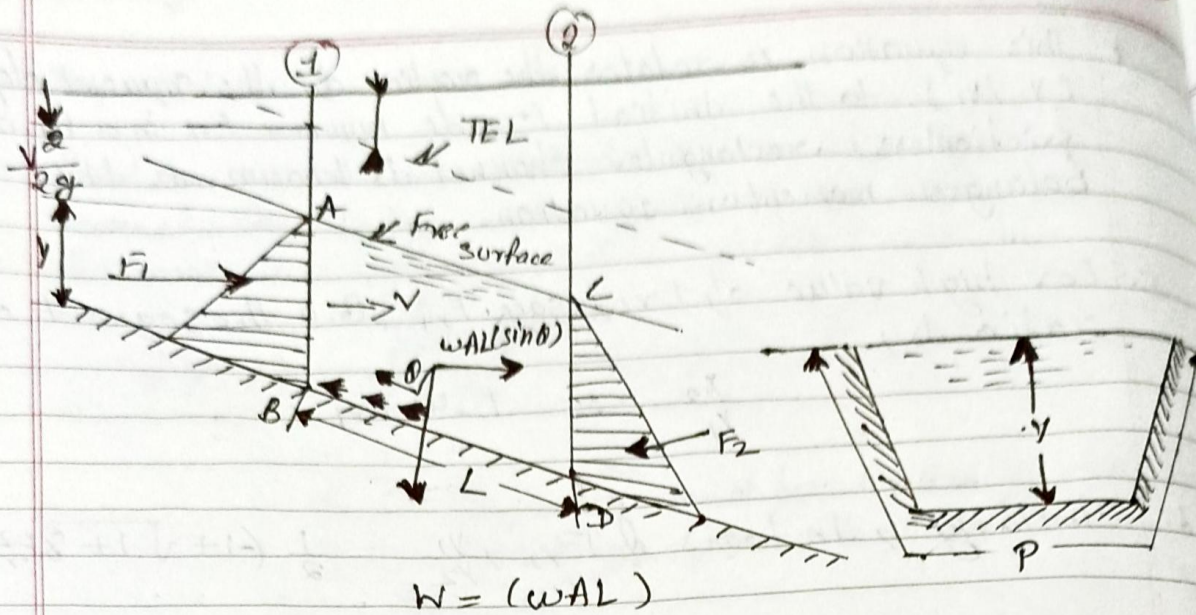 1
2
TEL
2g
A
Free
surface
y
F1
V
C
wAL(sinθ)
θ
B
L
F2
D
y
P
W = (wAL)